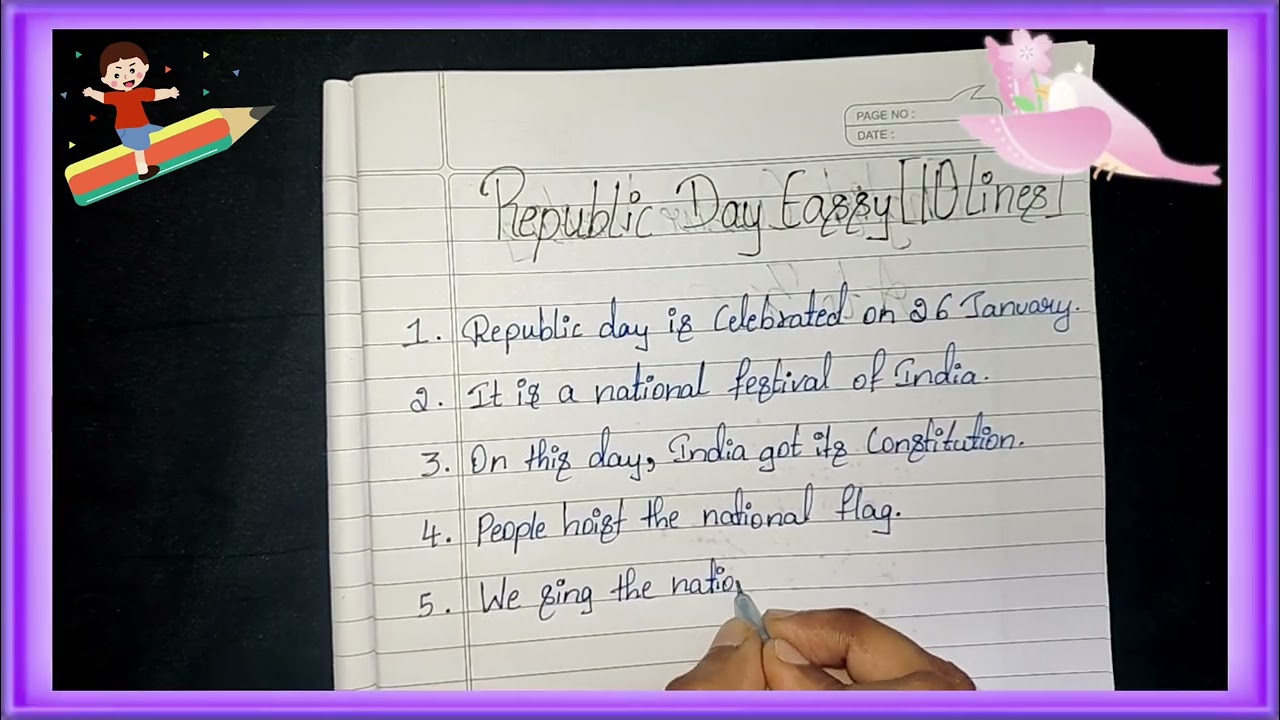 PAGE NO :
DATE :
Republic Day Eassy [10 lines]
1. Republic day is Celebrated on 26 January.
2. It is a national festival of India.
3. On this day, India got its Constitution.
4. People hoist the national flag.
5. We sing the natio